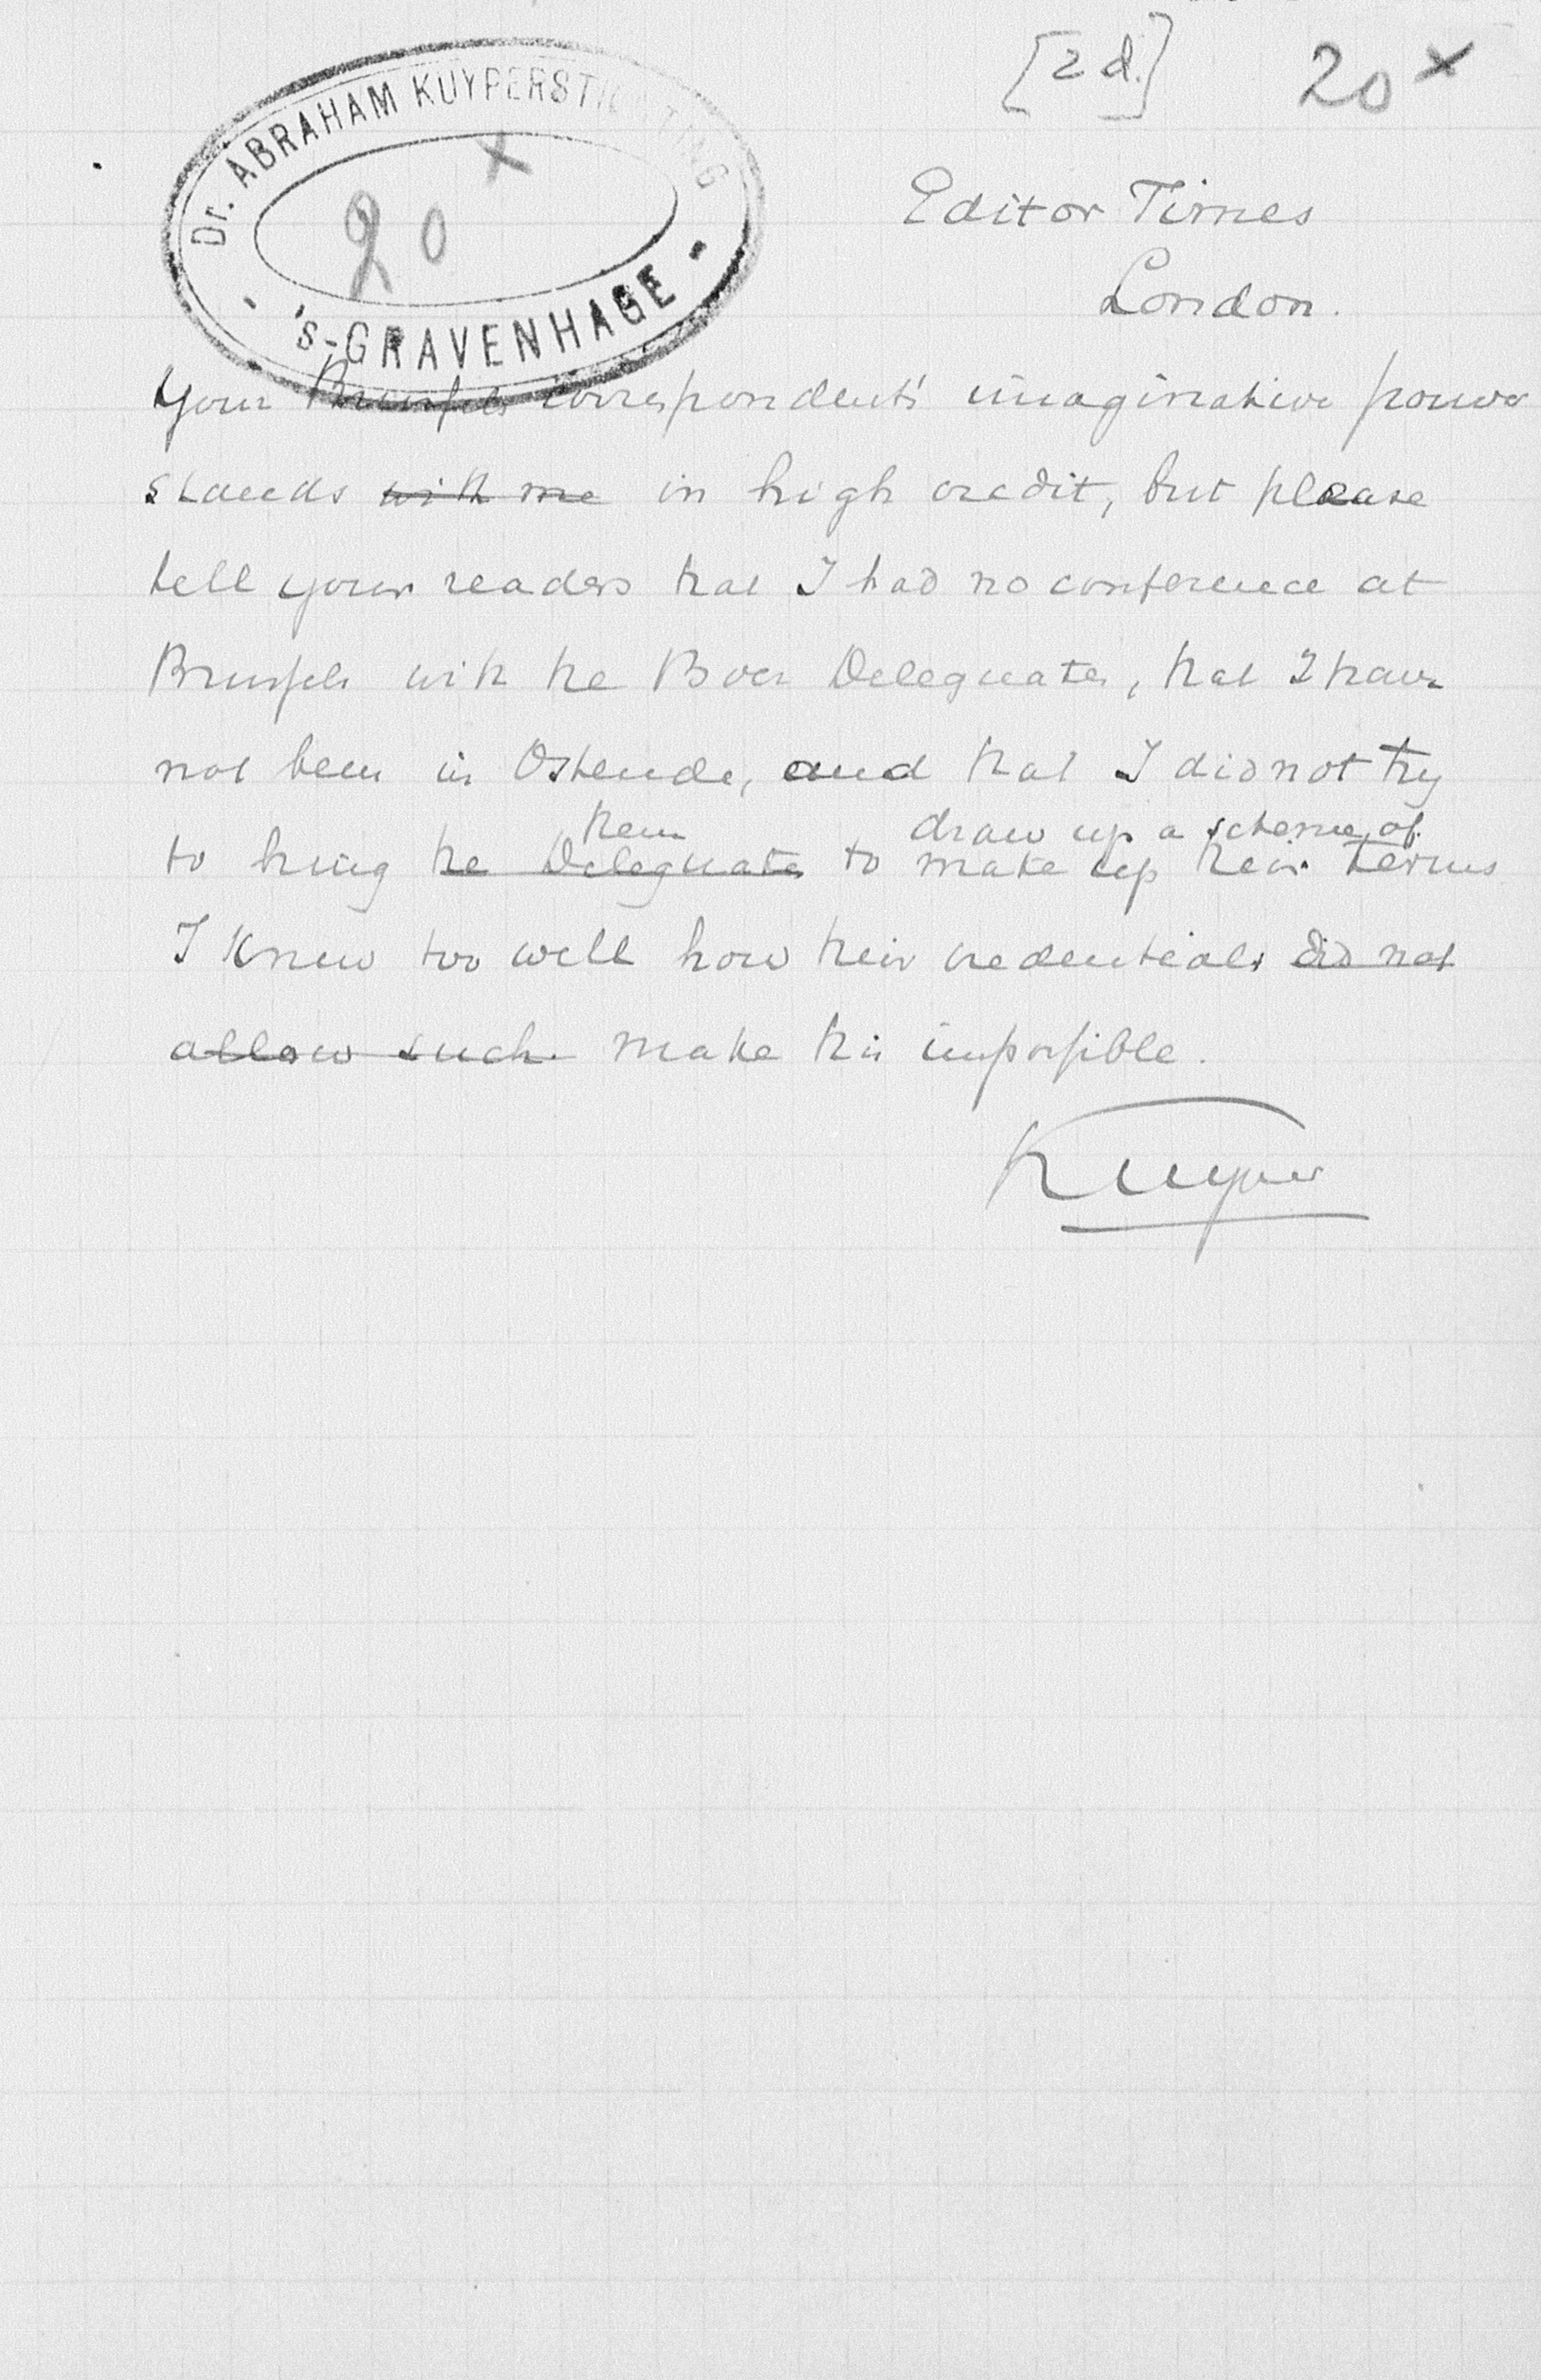 [2 d.] 20 x
Dr. ABRAHAM KUYPERSTICHTING
20 x
'S-GRAVENHAGE
Editor Times
London.
Your Brussels correspondents' imaginative power
stands with me in high credit, but please
tell your readers that I had no conference at
Brussels with the Boer Deleguates, that I have
not been in Ostende, and that I did not try
them draw up a scheme of
to bring the Deleguates to make up their terms
I knew too well how their credentials did not
allow such make this impossible.
Kuyper